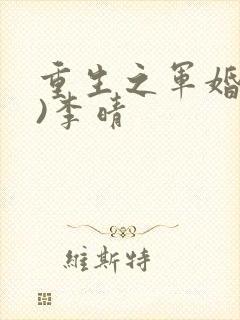 重生之军婚
)李晴
維斯特